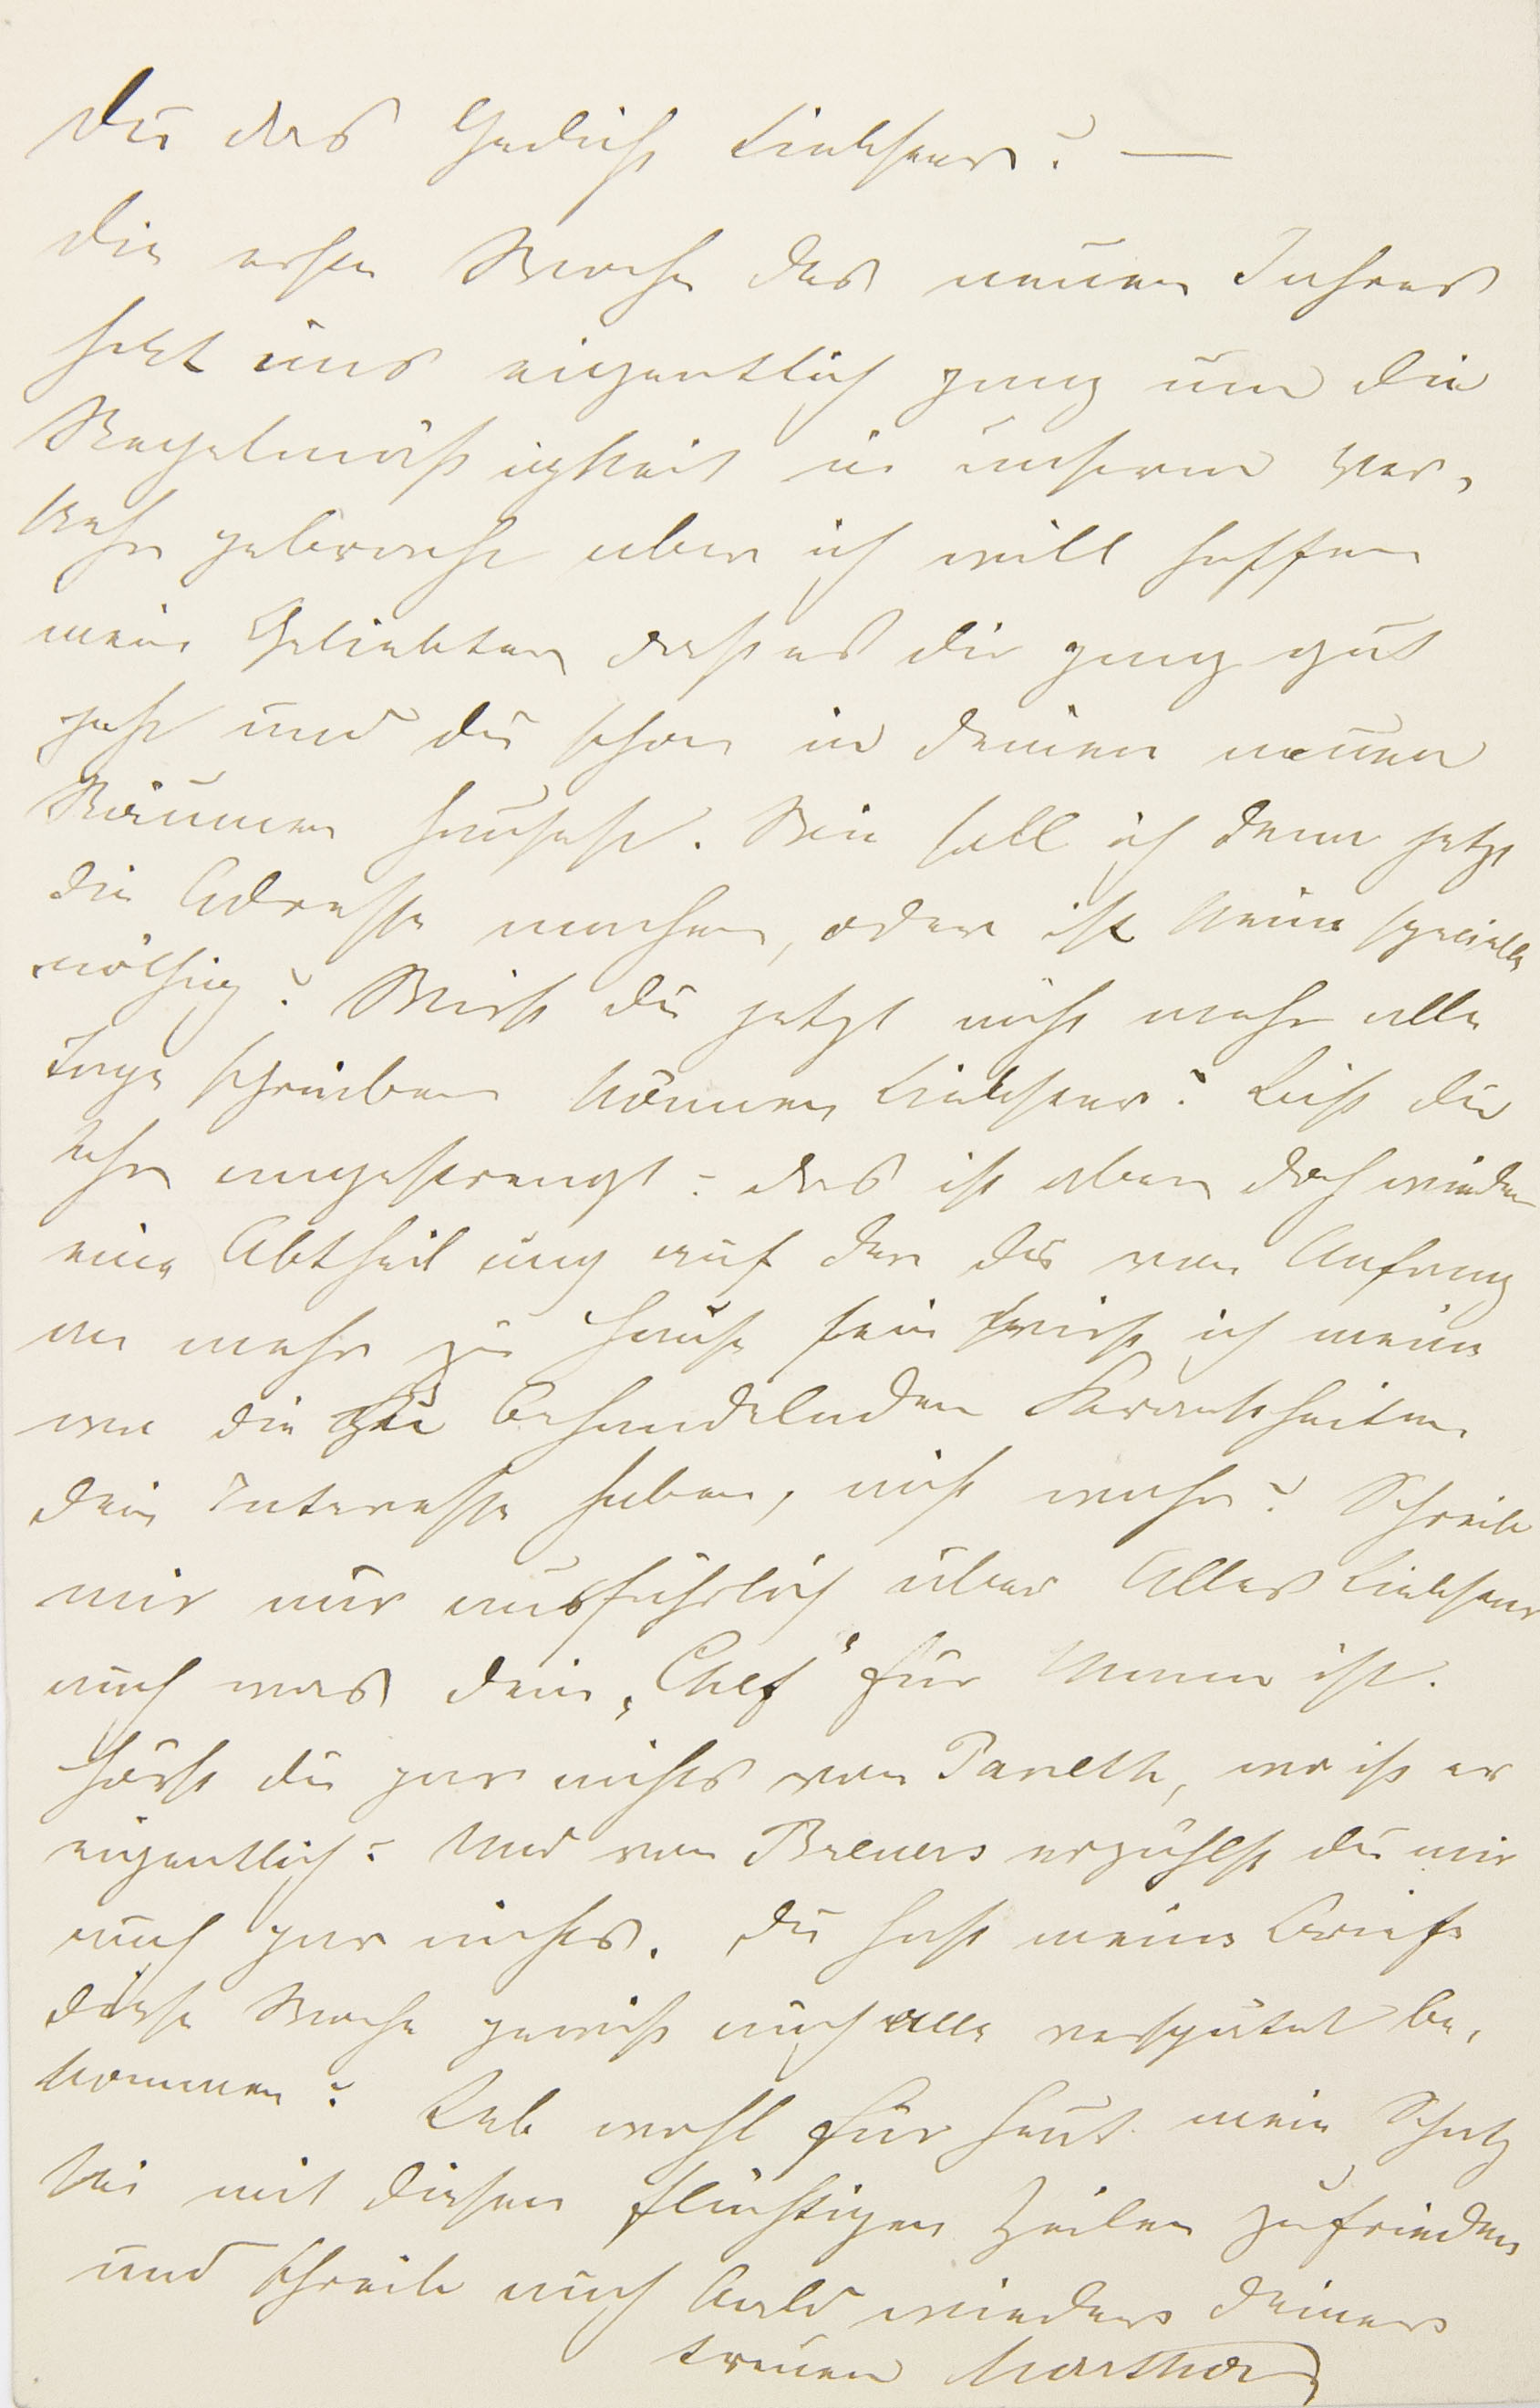 Du das Gedicht Liebster? —
Die erste Woche des neuen Jahres
hat uns eigentlich ganz um die
Regelmäßigkeit in unserem Ver-
kehr gebracht aber ich will hoffen
mein Geliebter daß es dir ganz gut
geht und du schon in deinen neuen
Räumen hausest. Wie soll ich denn jetzt
die Adresse machen, oder ist keine specielle
nöthig? Wirst du jetzt nicht mehr alle
Tage schreiben können Liebster? Bist du
sehr angestrengt? das ist aber doch wieder
eine Abtheilung auf der du von Anfang
an mehr zu Hause sein wirst ich meine
wo die zu behandelnden Krankheiten
dein Interesse haben, nicht wahr? Schreib
mir nur ausführlich über Alles Liebster
auch was dein „Chef" für Mann ist.
Hörst du gar nichts von Paneth, wo ist er
eigentlich? Und von Breuers erzählst du mir
auch gar nichts. Du hast meine Briefe
diese Woche gewiß auch alle verspätet be-
kommen? Leb wohl für heut mein Schatz
sei mit diesen flüchtigen Zeilen zufrieden
und schreib auch bald wieder deiner
treuen Martha